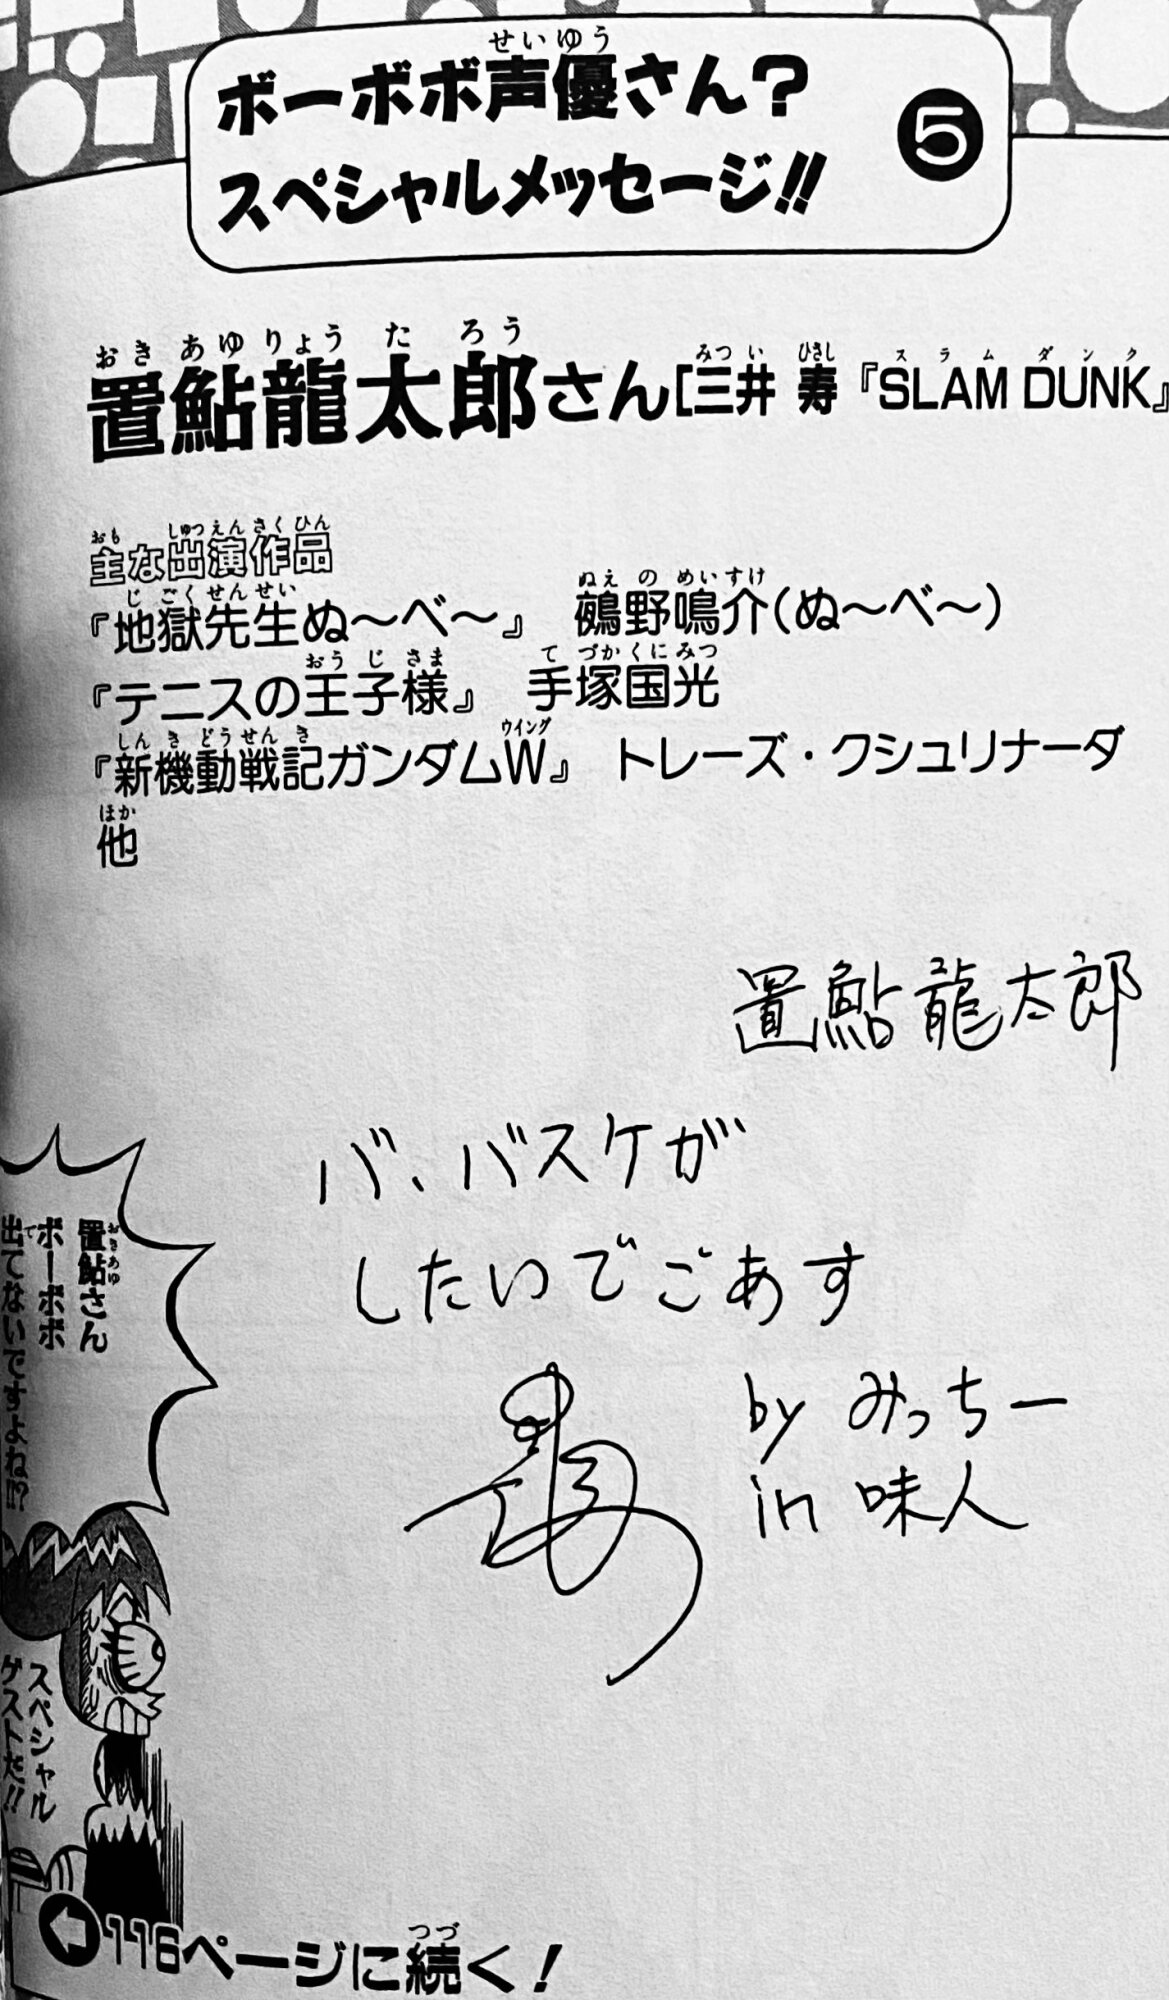 ボーボボ声優さん?
スペシャルメッセージ!!
5
置鮎龍太郎さん[三井 寿『SLAM DUNK』
主な出演作品
『地獄先生ぬ〜べ〜』 鵺野鳴介(ぬ〜べ〜)
『テニスの王子様』 手塚国光
『新機動戦記ガンダムW』 トレーズ・クシュリナーダ
他
置鮎龍太郎
バ、バスケが
したいでごあす
by みっちー
in 味人
置鮎さん
ボーボボ
出てないですよね!?
スペシャル
ゲストだ!!
116ページに続く!